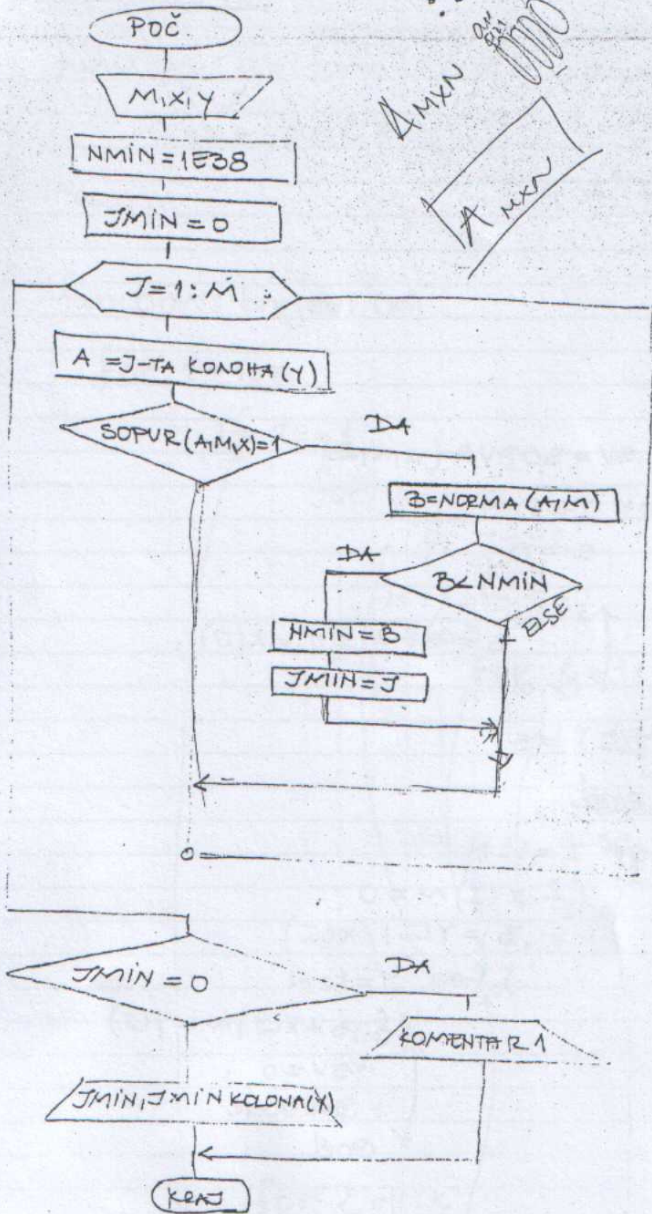 POČ
M,X,Y
A MXN
A MXN
NMIN=1E38
JMIN=0
J=1:M
A =J-TA KOLONA(Y)
SOPUR(A,M,X)=1
DA
B=NORMA(A,M)
DA
B<NMIN
ELSE
NMIN=B
JMIN=J
JMIN=0
DA
KOMENTAR 1
JMIN,JMIN KOLONA(Y)
KRAJ